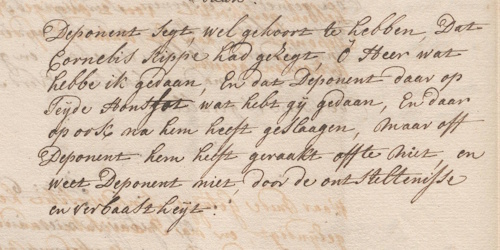 Deponent Segt, wel gehoort te hebben, Dat
Cornelis Kippe had gezegt, O Heer wat
hebbe ik gedaan, En dat Deponent daar op
Zeyde Honsfot wat hebt gij gedaan, En daar
op ook na hem heeft geslaagen, maar off
Deponent hem heeft geraakt offte niet, en
weet Deponent niet, door de ontsteltenisse
en verbaastheyt.